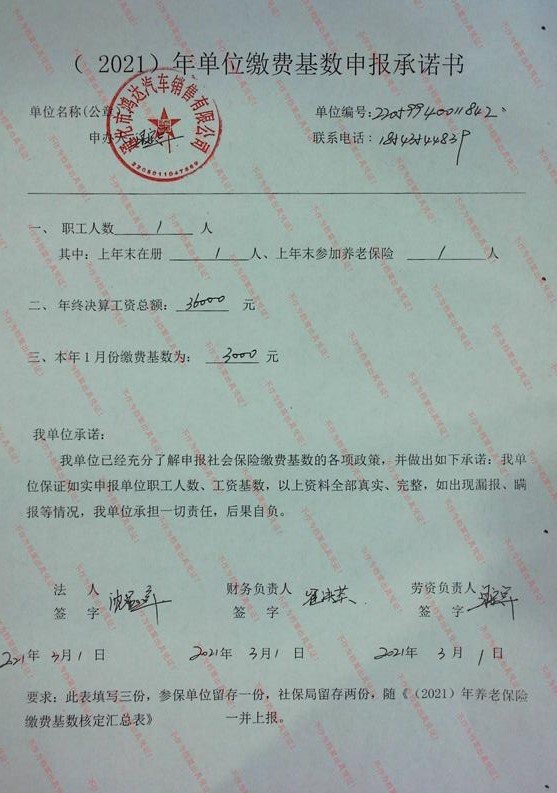 （ 2021）年单位缴费基数申报承诺书
单位名称(公章
市鸿达汽车销售有限公司
2205011047869
单位编号:2205994001842
申办人
联系电话：18543544839
一、 职工人数 1 人
其中：上年末在册 1 人、上年末参加养老保险 1 人
二、年终决算工资总额: 36000 元
三、本年1月份缴费基数为： 3000 元
我单位承诺：
我单位已经充分了解申报社会保险缴费基数的各项政策，并做出如下承诺：我单
位保证如实申报单位职工人数、工资基数，以上资料全部真实、完整，如出现漏报、瞒
报等情况，我单位承担一切责任，后果自负。
法 人 财务负责人 劳资负责人
签 字 签 字 签 字
2021年 3月1 日 2021年 3月1 日 2021年 3 月 1 日
要求：此表填写三份，参保单位留存一份，社保局留存两份，随《（2021）年养老保险
缴费基数核定汇总表》 一并上报。